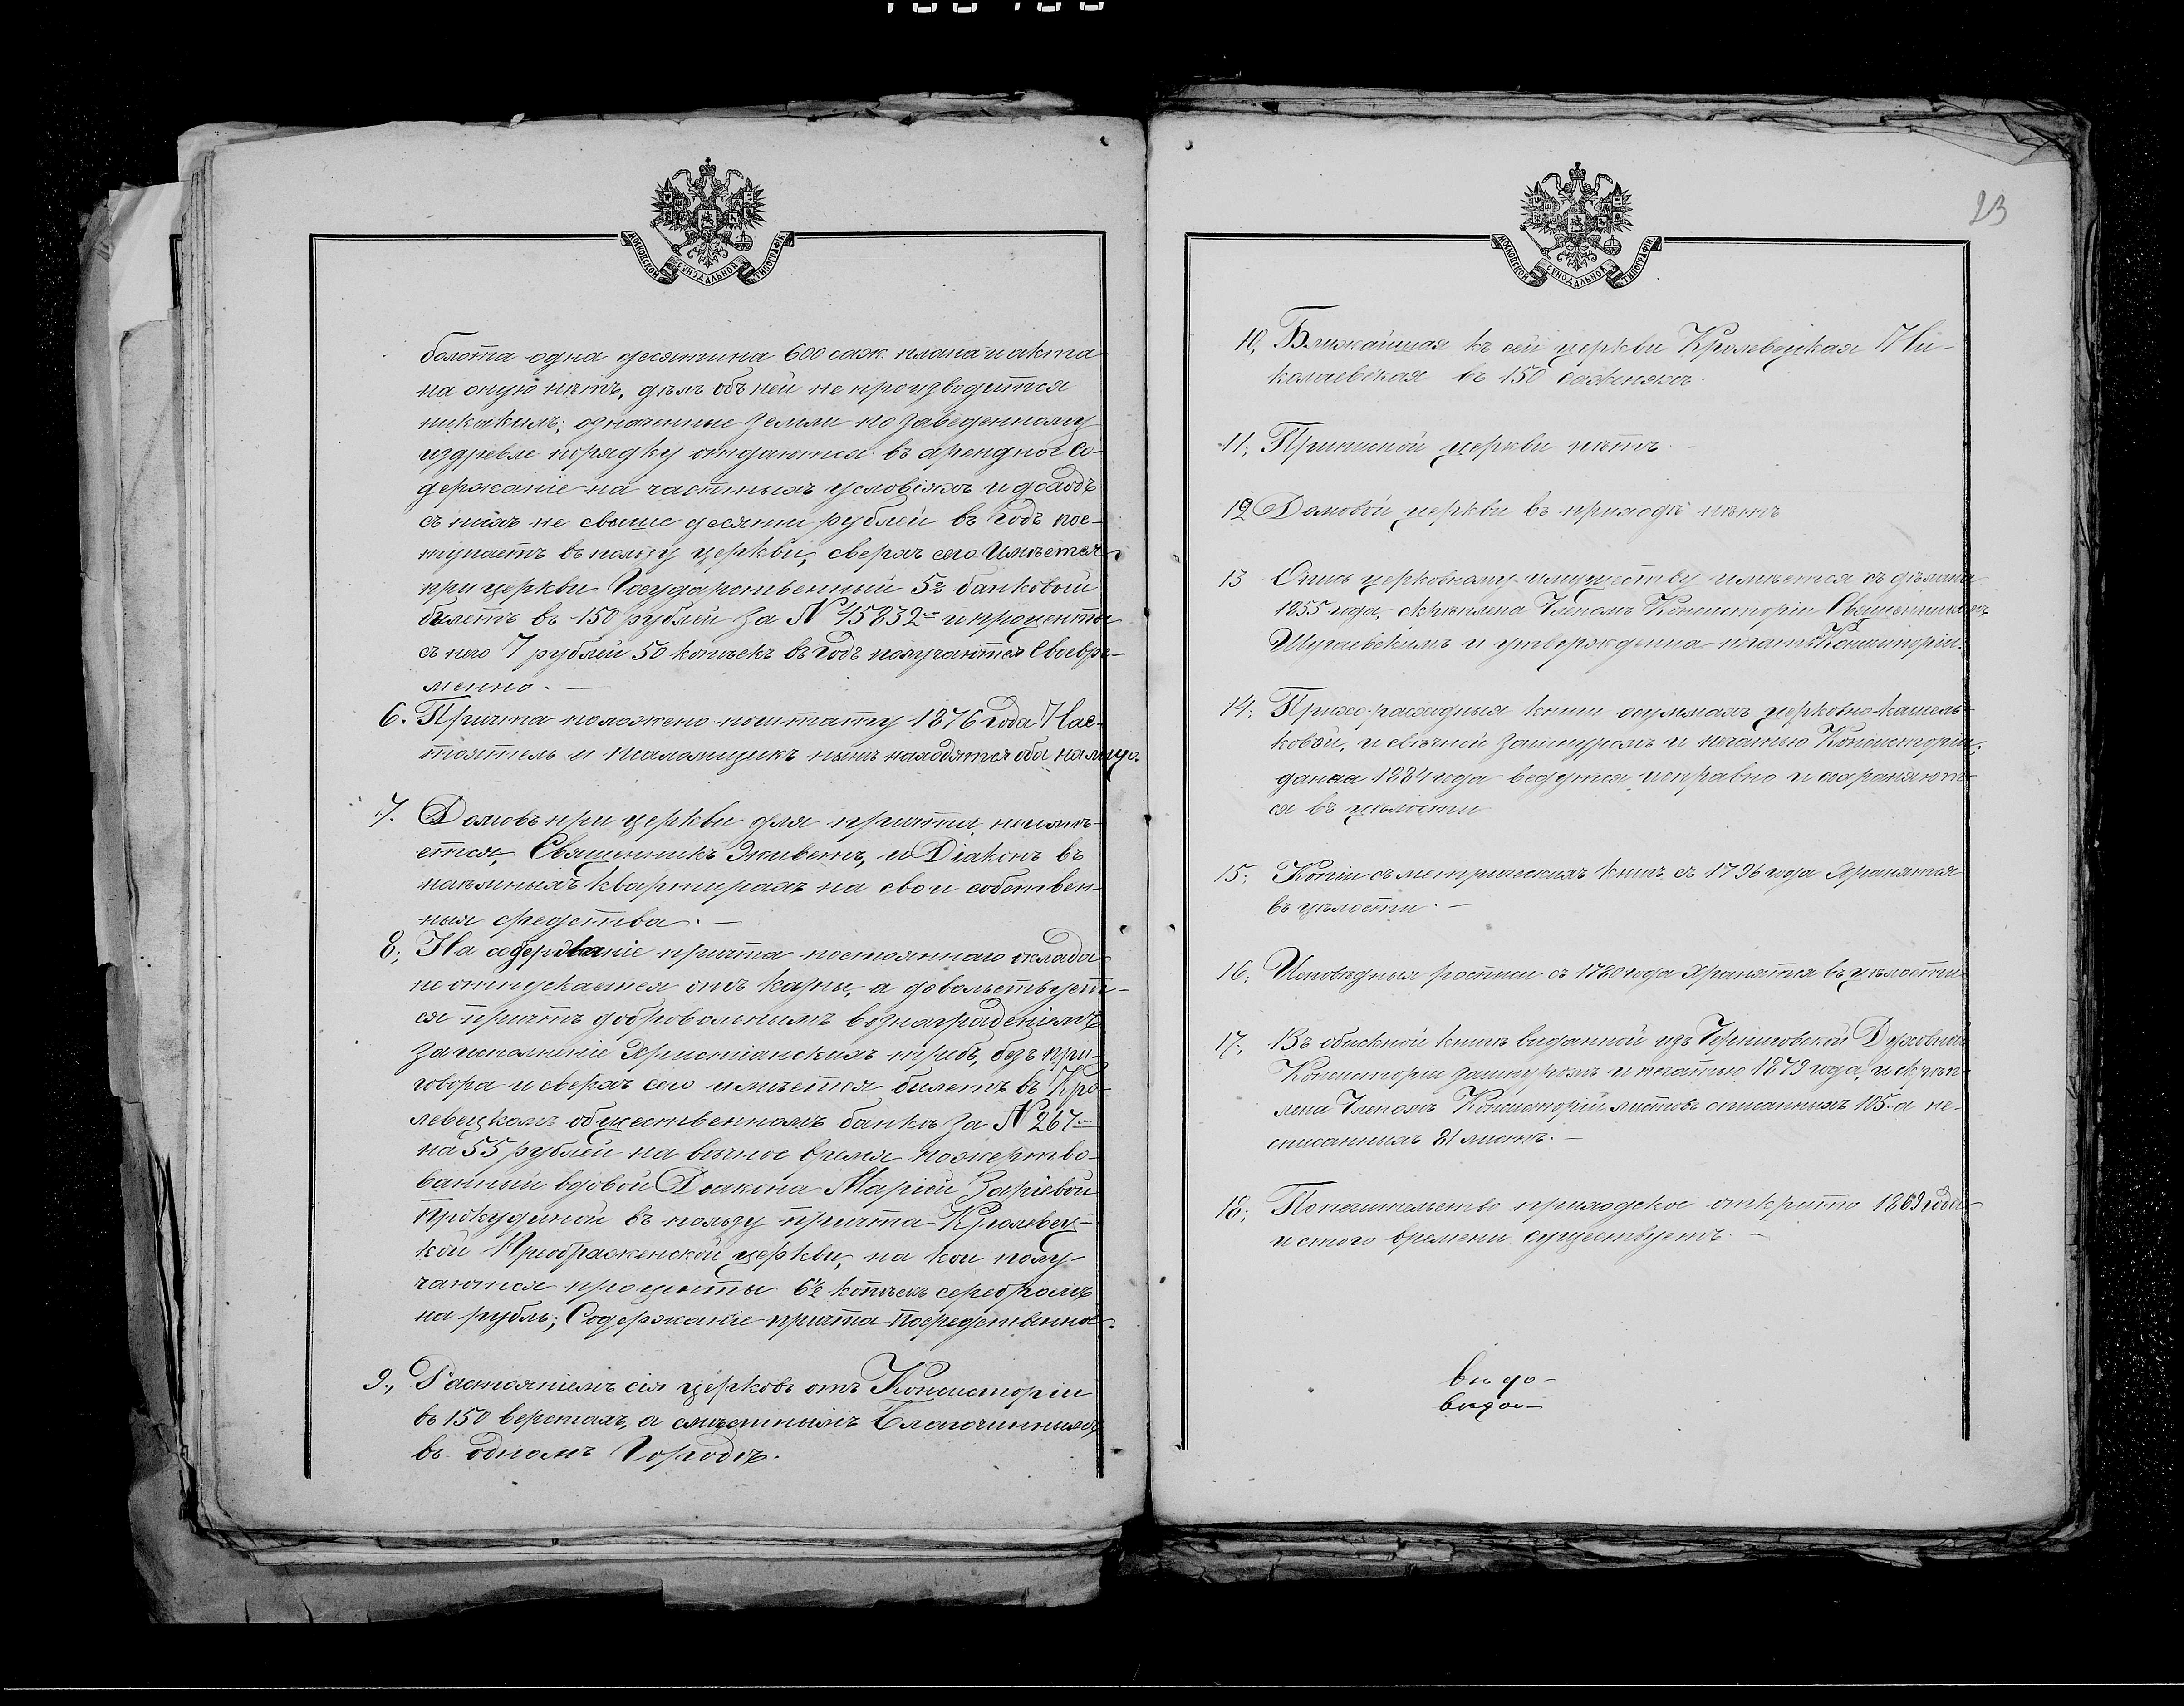 МОСКОВСКОЙ СѴНОДАЛЬНОЙ ТИПОГРАФІИ
болота одна десятина 600 саж. плана и акта
на оную нѣтъ, дѣлъ объ ней не производится
никакихъ; означенные земли по заведенному
издревле порядку отдаются въ арендное со-
держаніе на частныхъ условіяхъ и доходъ
съ нихъ не свыше десяти рублей въ годъ пос-
тупаетъ въ пользу церкви, сверхъ сего имѣется
при церкви Государственный 5% банковой
билетъ въ 150 рублей за N 45832 и проценты
съ него 7 рублей 50 копѣекъ въ годъ получаются Своевре-
менно. —
6. Причта положено по штату 1876 года Нас-
тоятель и псаломщикъ нынѣ находятся оба на лицо.
7. Домовъ при церкви для причта не имѣ-
ется, Священникъ живетъ, и Діаконъ въ
наемныхъ квартирахъ на свои собствен-
ныя средства. —
8; На содержаніе причта постояннаго оклада
не отпускается отъ казны, а довольствует-
ся причтъ добровольнымъ вознагражденіемъ
за исполненіе Христіанскихъ требъ, безъ при-
говора и сверхъ сего имѣется билетъ въ Кро-
левецкомъ общественномъ банкѣ за N 267
на 55 рублей на вѣчное время пожертво-
ванный вдовой Діакона Маріей Заріевой
Прокудиной въ пользу причта Кролевец-
кой Преображенской церкви, на кои полу-
чаются проценты 6½ копѣекъ серебромъ
на рубль; Содержаніе причта посредственное.
9., Разстояніемъ сія церковь отъ Консисторіи
въ 150 верстахъ, а съ мѣстнымъ Благочиннымъ
въ одномъ Городѣ.
23
МОСКОВСКОЙ СѴНОДАЛЬНОЙ ТИПОГРАФІИ
10, Ближайшая къ сей церкви Кролевецкая Ни-
колаевская въ 150 саженяхъ.
11; Приписной церкви нѣтъ. —
12 Домовой церкви въ приходѣ нѣтъ
13 Опись церковному имуществу имѣется съ дѣлана
1855 года, скрѣплена Членомъ Консисторіи Священникомъ
Шугаевскимъ и утвержденна Консисторіи.
14; Прихо-расходныя книги суммахъ церковно-кошель-
ковой, и свѣчной за шнуромъ и печатью Консисторіи,
данная 1884 года ведутся исправно и сохраняют-
ся въ цѣлости
15; Копіи съ метрическихъ книгъ съ 1796 года хранятся
въ цѣлости. —
16; Исповѣдныя росписи съ 1780 года хранятся въ цѣлости
17; Въ обыскной книгѣ выданной изъ Черниговской Духовной
Консисторіи за шнуромъ и печатью 1879 года, и скрѣп-
лена Членомъ Консисторіи листовъ списанныхъ 105. а не-
списанныхъ 81 листъ. —
18; Попечительство приходское открыто 1869 года
и с того времени существуетъ. —